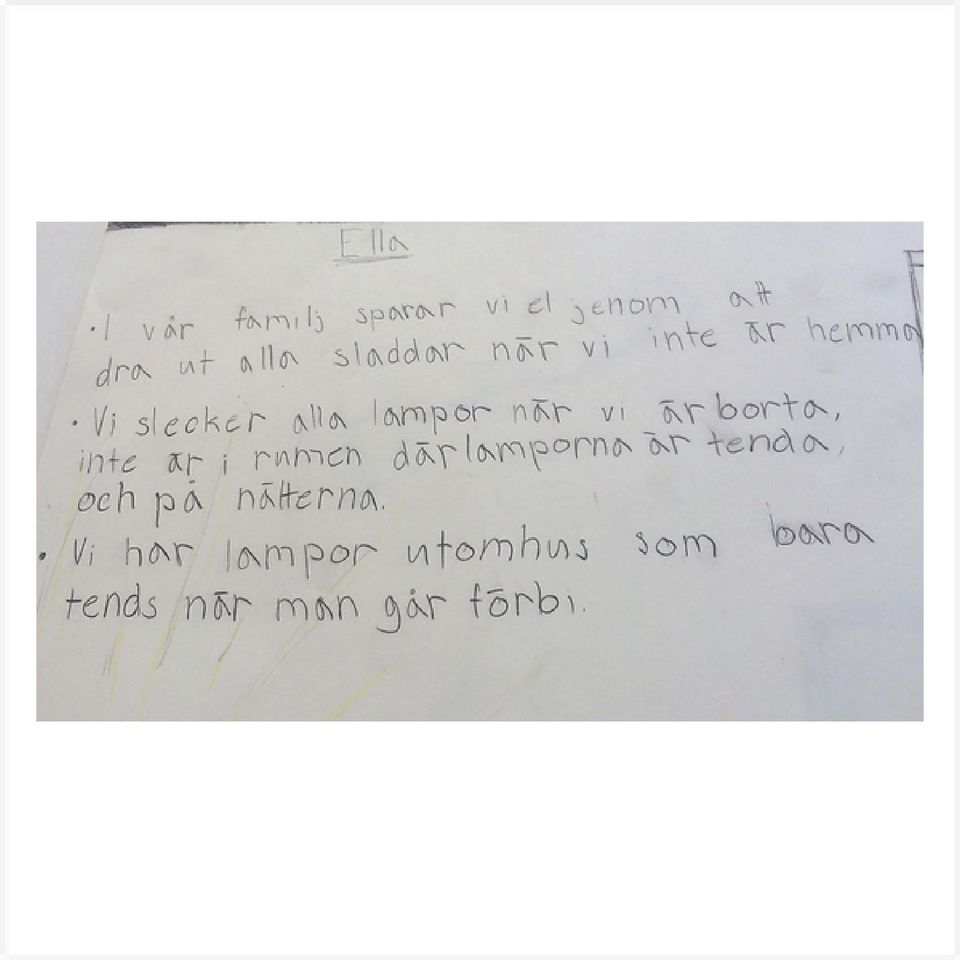 Ella
• I vår familj sparar vi el jenom att
dra ut alla sladdar när vi inte är hemma
• Vi slecker alla lampor när vi är borta,
inte är i rumen där lamporna är tenda,
och på nätterna.
• Vi har lampor utomhus som bara
tends när man går förbi.